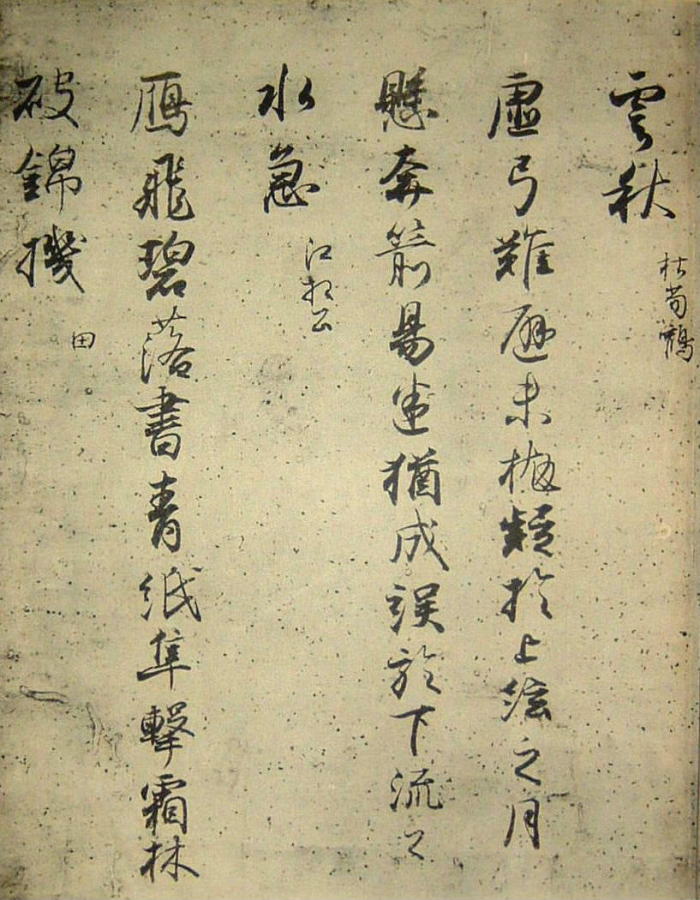 雲秋 杜荀鶴
虛弓難避未抛疑於上絃之月
懸奔箭易迷猶成誤於下流之
水急 江相公
鴈飛碧落書青紙隼擊霜林
破錦機 田